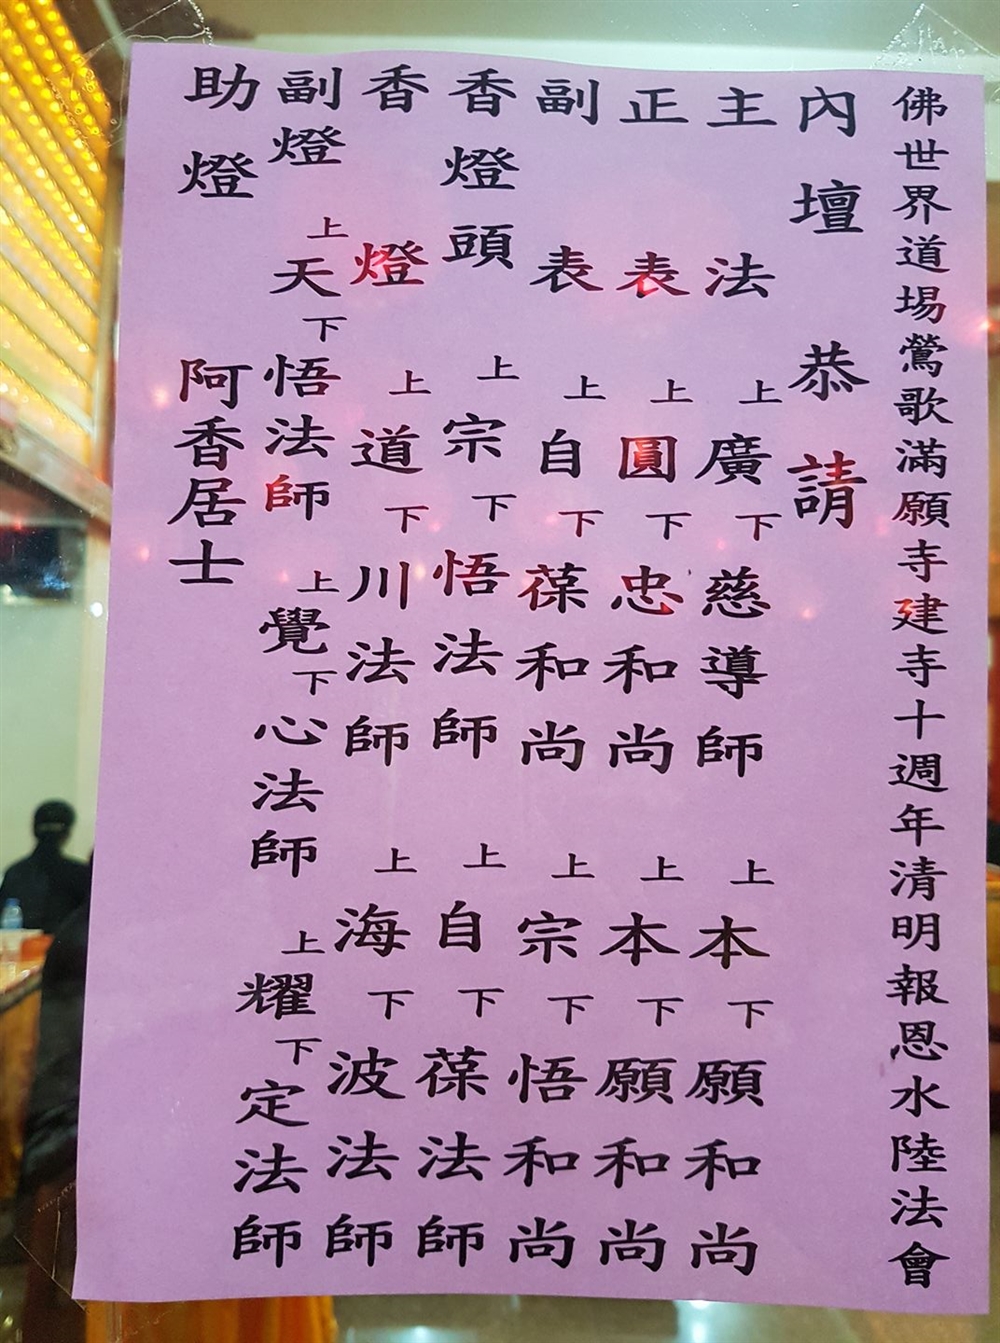 佛世界道場鶯歌滿願寺建寺十週年清明報恩水陸法會
內壇恭請
主法 上廣下慈導師 上本下願和尚
正表 上圓下忠和尚 上本下願和尚
副表 上自下葆和尚 上宗下悟和尚
香燈頭 上宗下悟法師 上自下葆法師
香燈 上道下川法師 上海下波法師
副燈 上天下悟法師 上覺下心法師 上耀下定法師
助燈 阿香居士